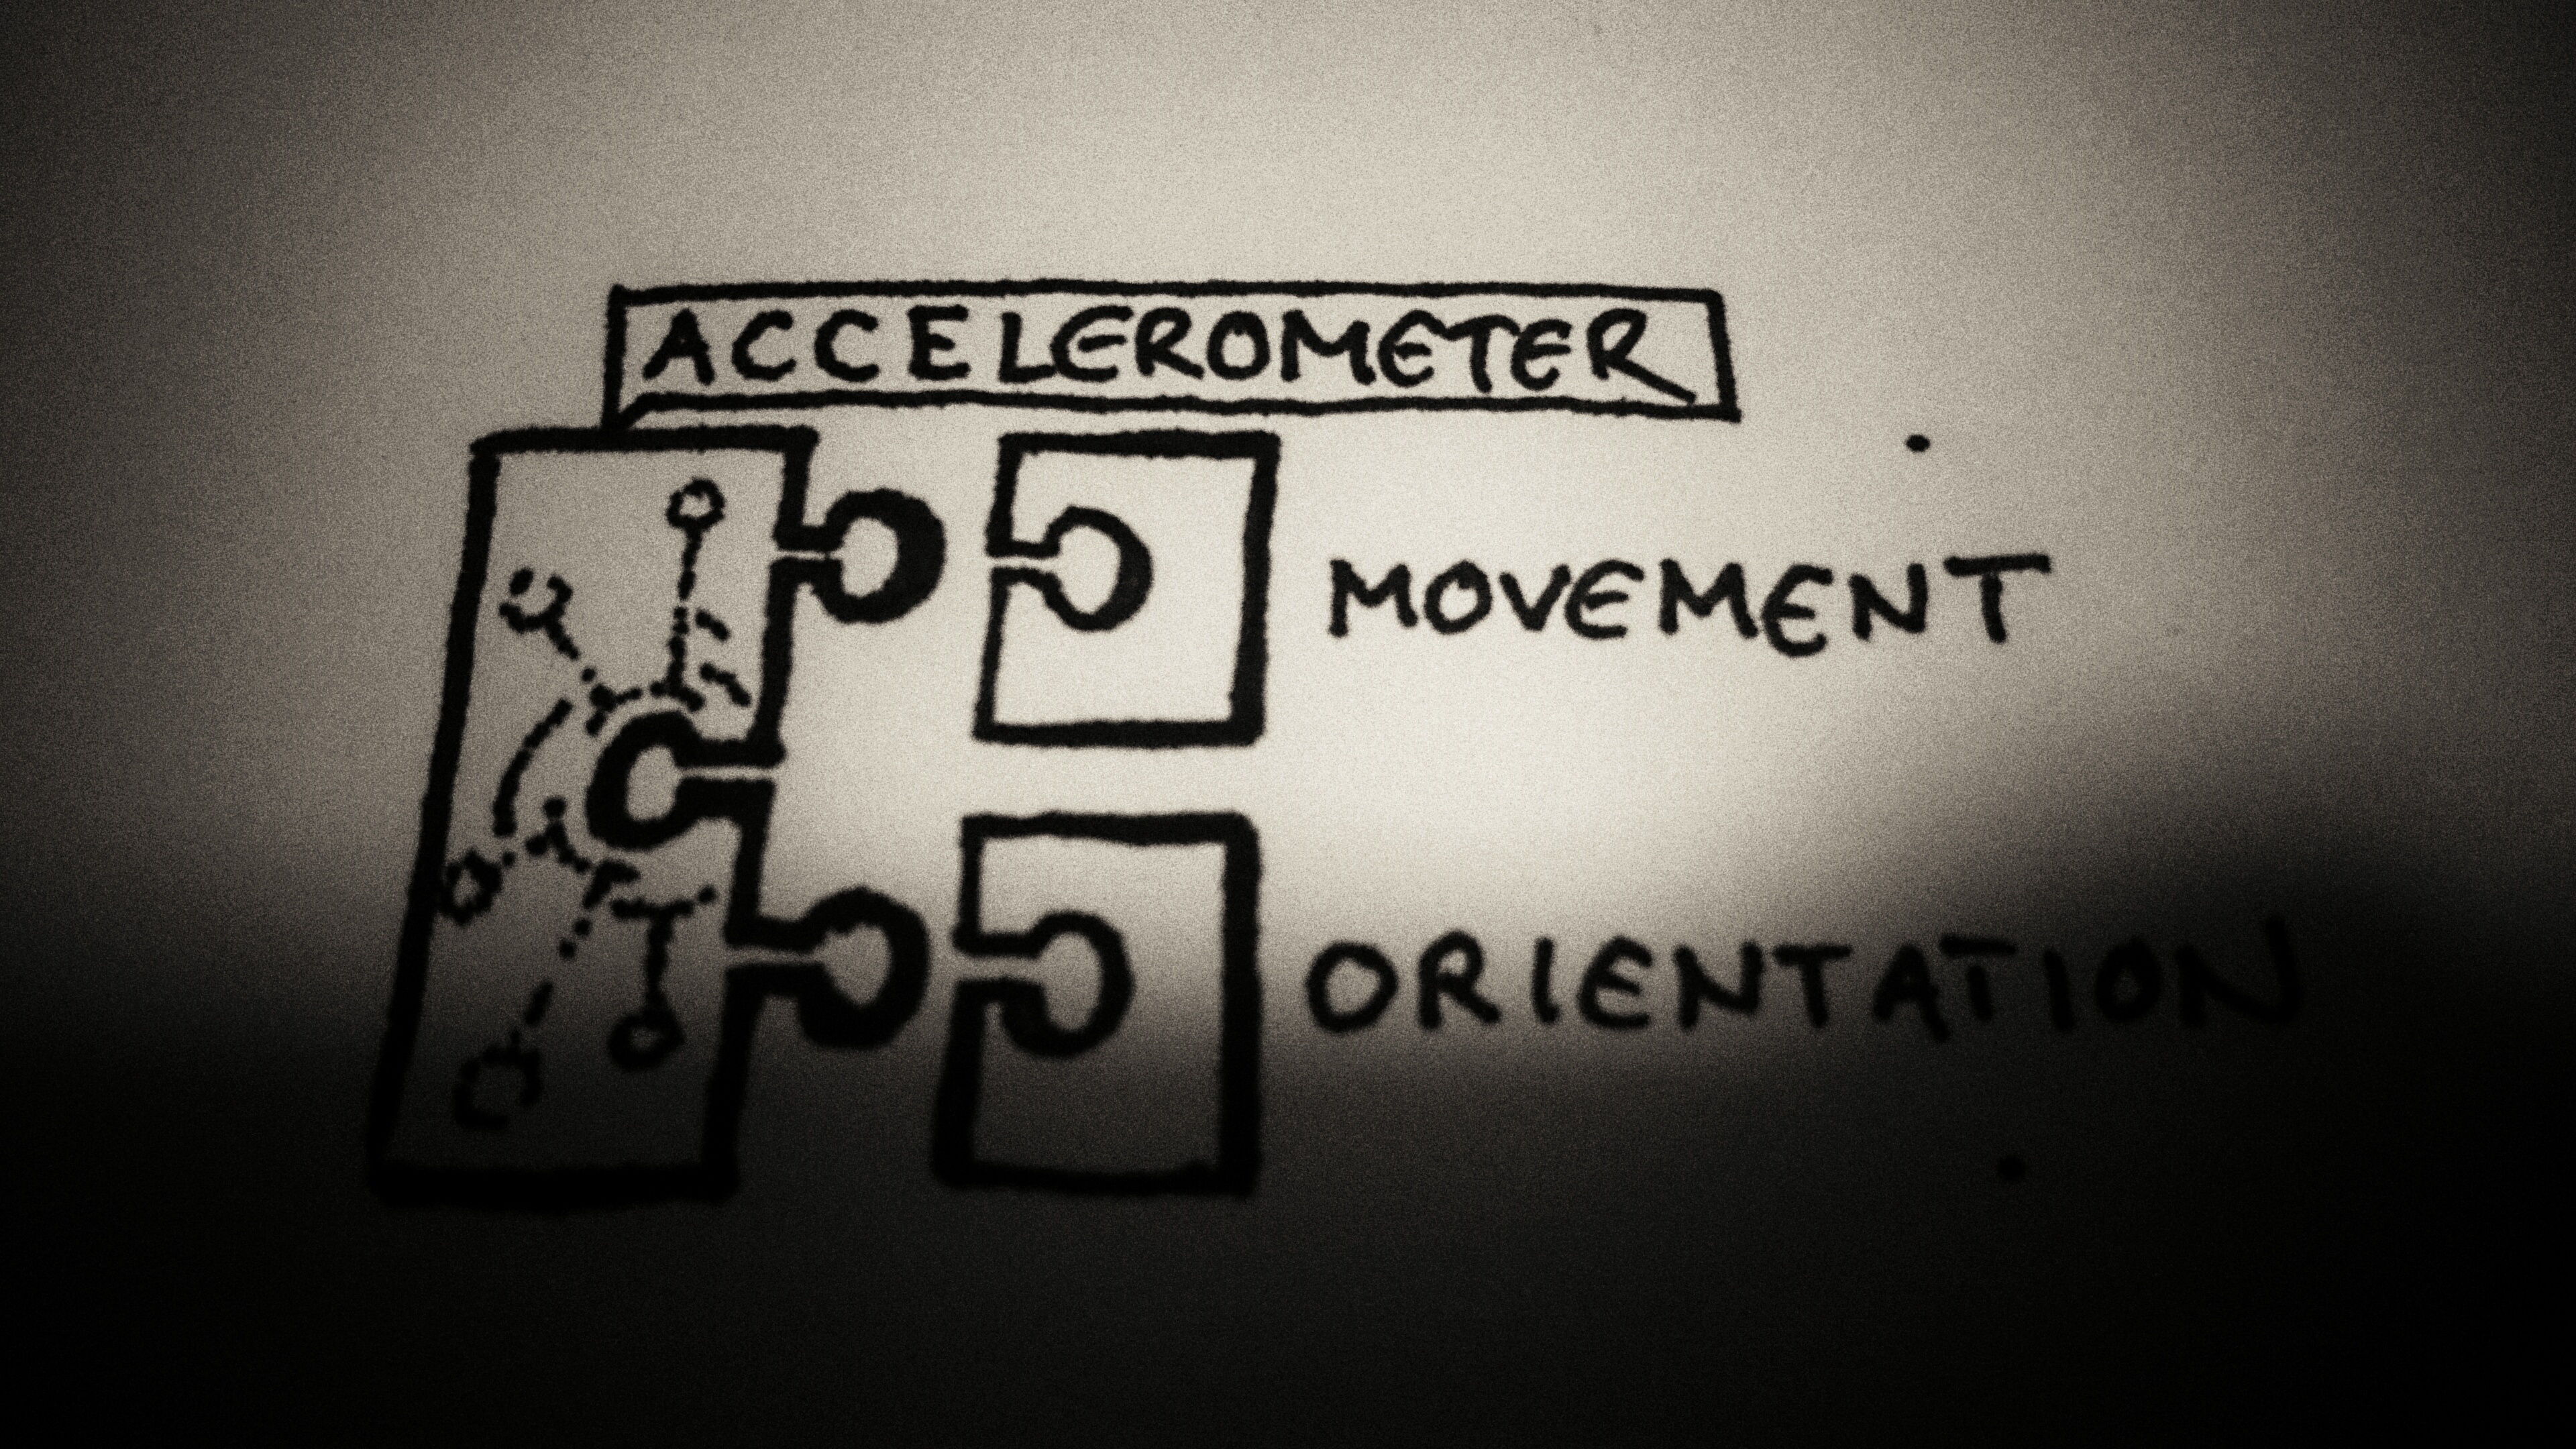 ACCELEROMETER
MOVEMENT
ORIENTATION